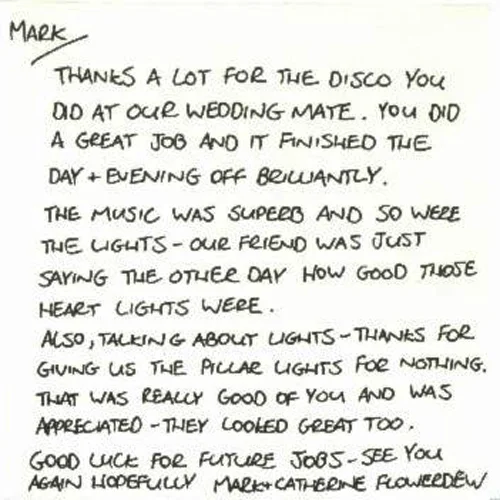 MARK
THANKS A LOT FOR THE DISCO YOU
DID AT OUR WEDDING MATE. YOU DID
A GREAT JOB AND IT FINISHED THE
DAY + EVENING OFF BRILLIANTLY.
THE MUSIC WAS SUPERB AND SO WERE
THE LIGHTS - OUR FRIEND WAS JUST
SAYING THE OTHER DAY HOW GOOD THOSE
HEART LIGHTS WERE.
ALSO, TALKING ABOUT LIGHTS - THANKS FOR
GIVING US THE PILLAR LIGHTS FOR NOTHING.
THAT WAS REALLY GOOD OF YOU AND WAS
APPRECIATED - THEY LOOKED GREAT TOO.
GOOD LUCK FOR FUTURE JOBS - SEE YOU
AGAIN HOPEFULLY MARK + CATHERINE FLOWERDEW